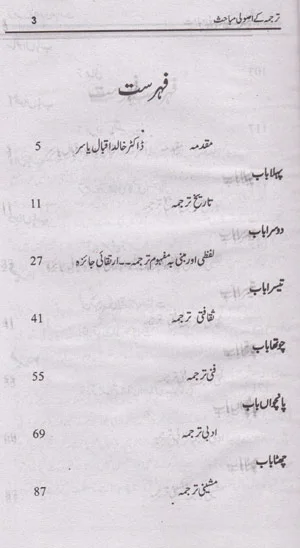 ترجمہ کے اصولی مباحث 3
فہرست
مقدمہ ڈاکٹر خالد اقبال یاسر 5
پہلا باب
تاریخِ ترجمہ 11
دوسرا باب
لفظی اور مبنی بہ مفہوم ترجمہ۔۔ارتقائی جائزہ 27
تیسرا باب
ثقافتی ترجمہ 41
چوتھا باب
فنی ترجمہ 55
پانچواں باب
ادبی ترجمہ 69
چھٹا باب
مشینی ترجمہ 87